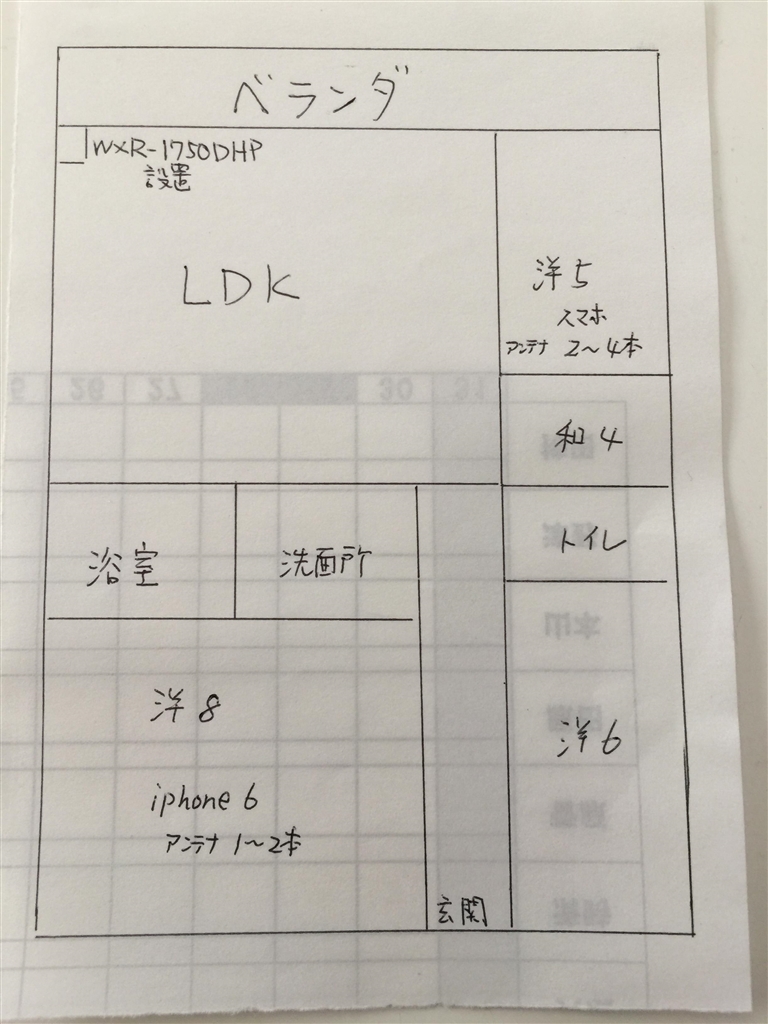 ベランダ
WXR-1750DHP
設置
LDK
洋5
スマホ
アンテナ 2〜4本
和4
トイレ
浴室
洗面所
洋8
iphone 6
アンテナ 1〜2本
洋6
玄関
26
27
30
31
山本